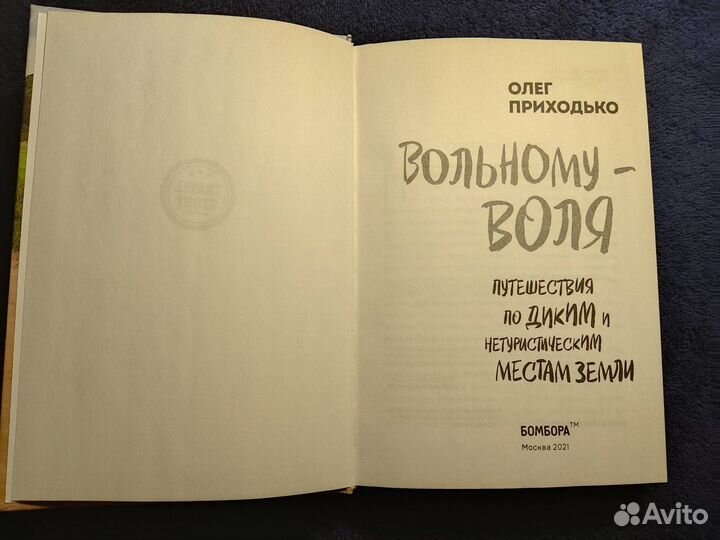 ОЛЕГ
ПРИХОДЬКО
ВОЛЬНОМУ –
ВОЛЯ
ПУТЕШЕСТВИЯ
ПО ДИКИМ И
НЕТУРИСТИЧЕСКИМ
МЕСТАМ ЗЕМЛИ
БОМБОРА™
Москва 2021
TRAVEL
STORY
Avito